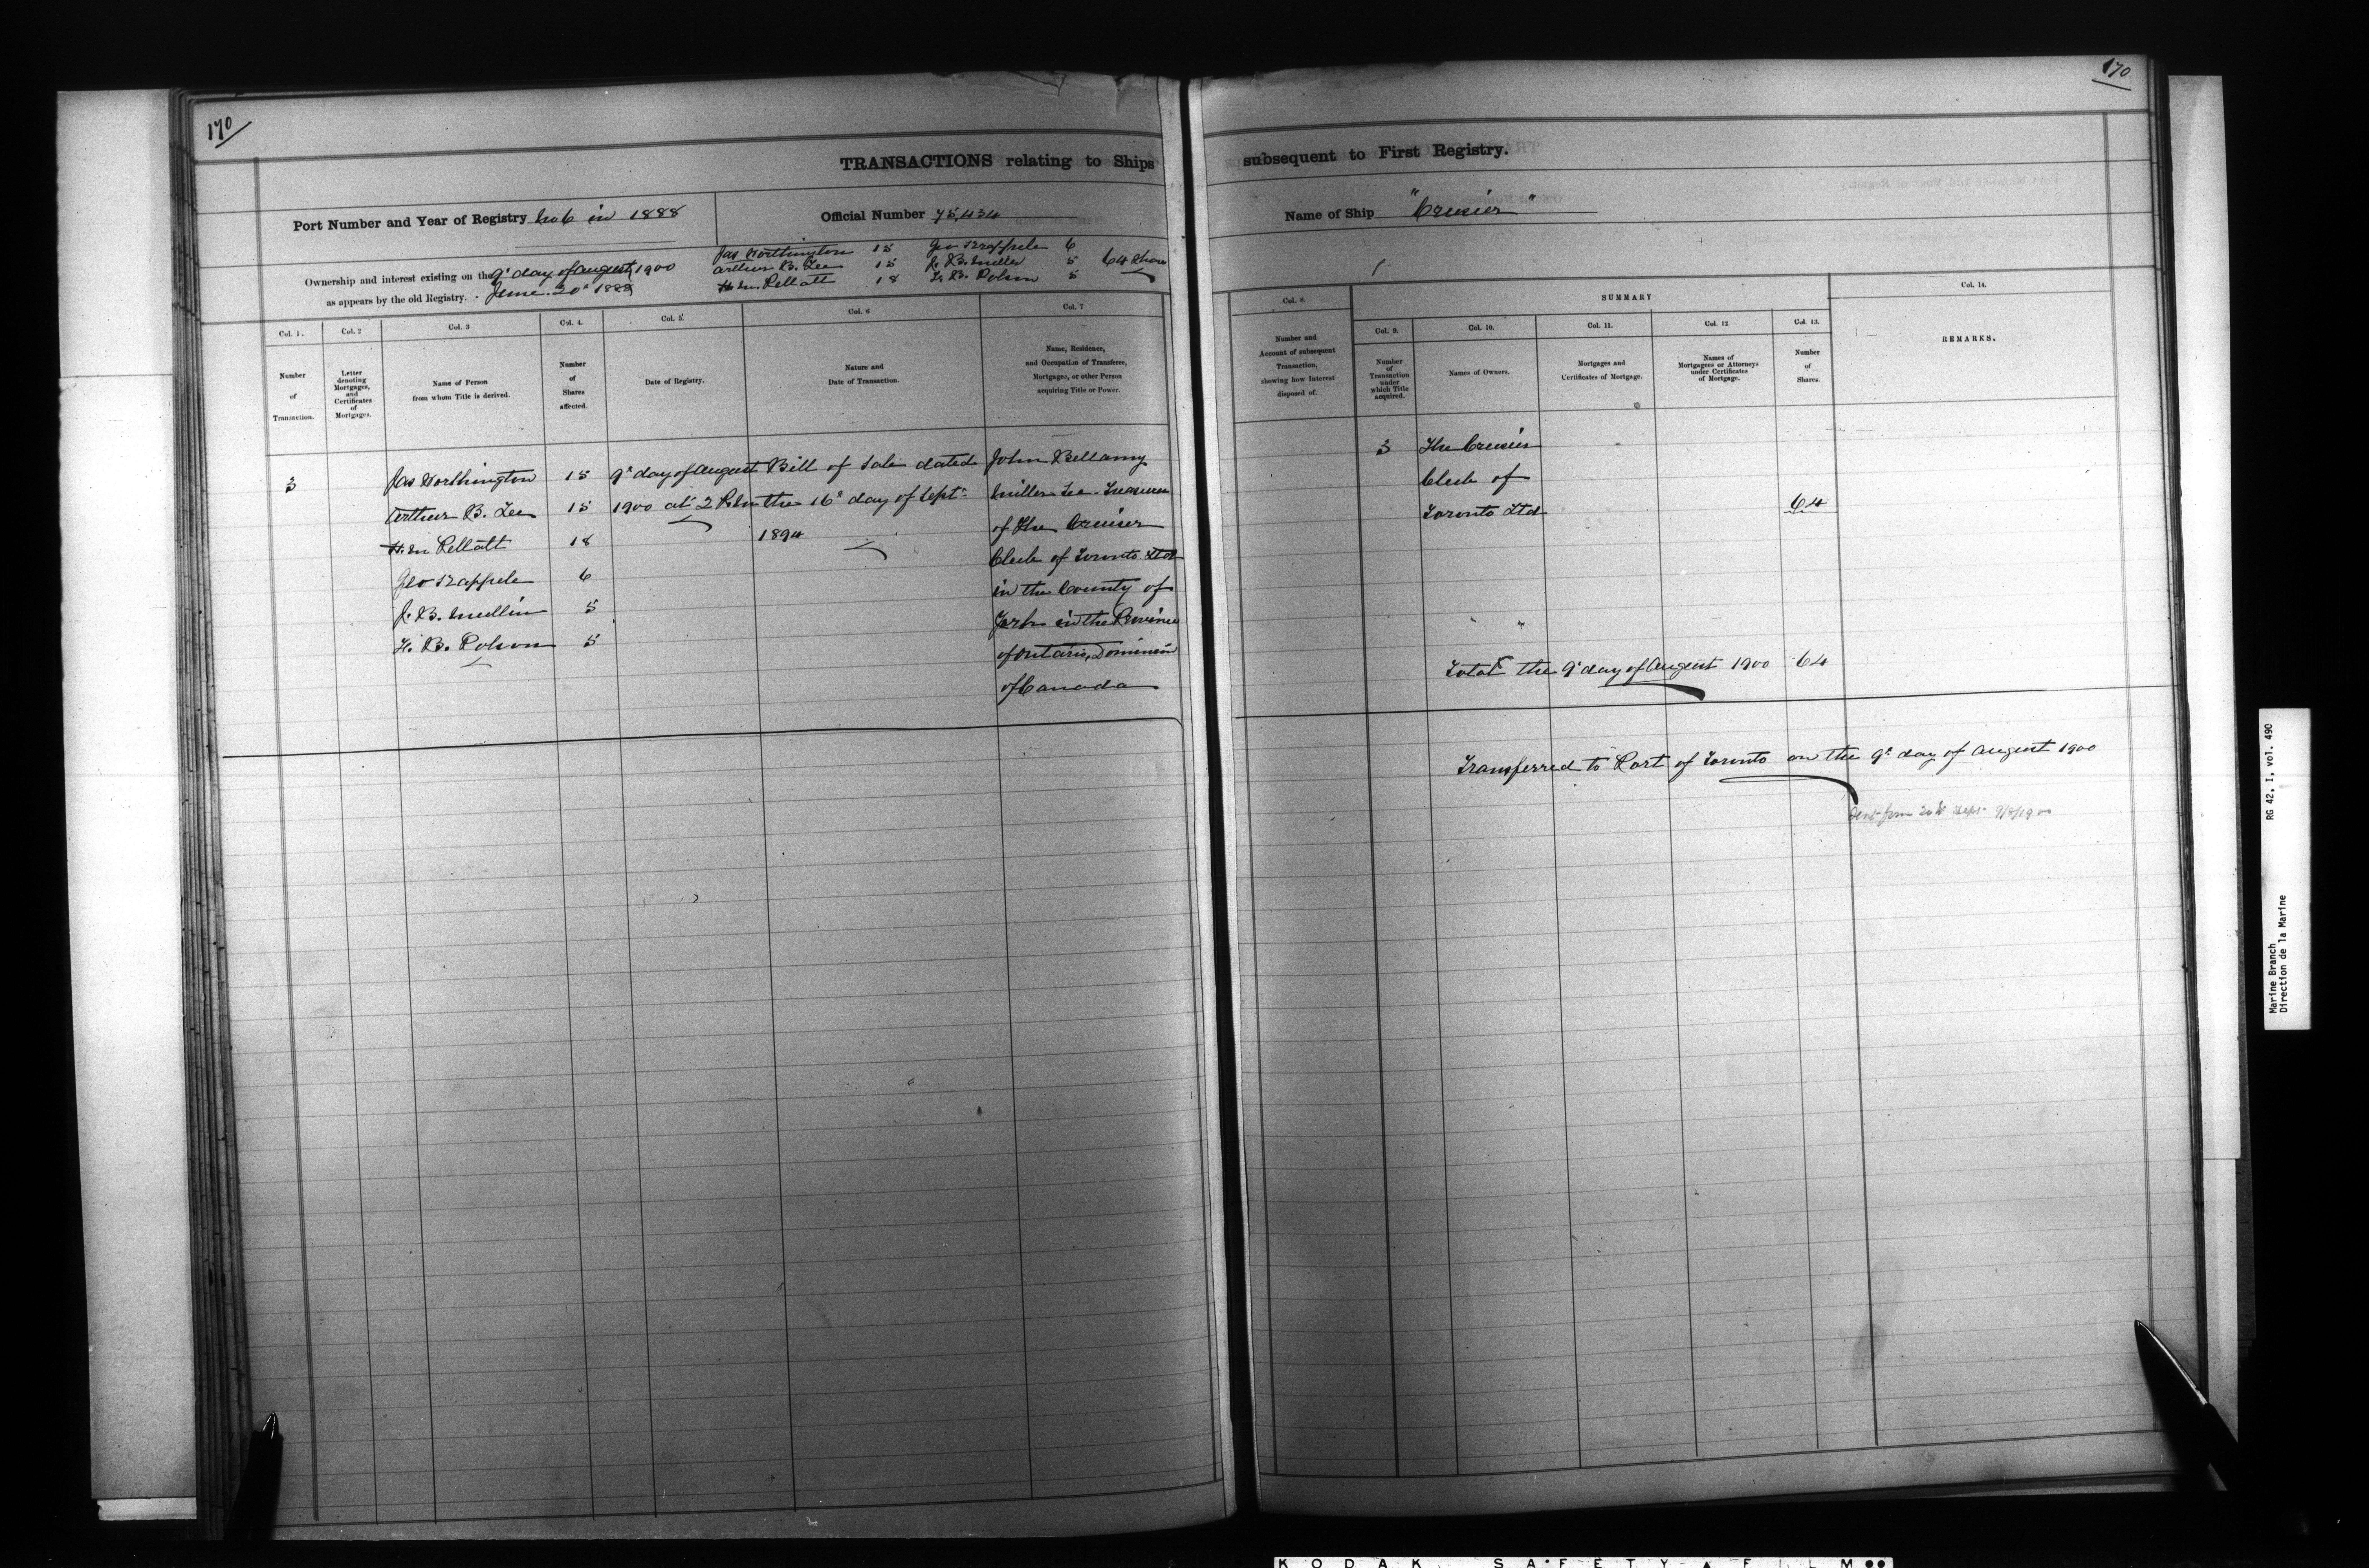 170
170
TRANSACTIONS relating to Ships subsequent to First Registry.
Port Number and Year of Registry No 6 in 1888
Official Number 75,434
Name of Ship "Cruiser"
Ownership and interest existing on the 9th day of August 1900
as appears by the old Registry. June 20th 1888
Jas Worthington 15 Geo 6
Arthur B. Lee 15 J. B. Miller 5 64 Shares
H. M. Pellatt 18 F. B. Polson 5
Col. 1.
Number
of
Transaction.
Col. 2
Letter
denoting
Mortgages,
and
Certificates
of
Mortgages.
Col. 3
Name of Person
from whom Title is derived.
Col. 4.
Number
of
Shares
affected.
Col. 5.
Date of Registry.
Col. 6
Nature and
Date of Transaction.
Col. 7
Name, Residence,
and Occupation of Transferee,
Mortgagee, or other Person
acquiring Title or Power.
Col. 8.
Number and
Account of subsequent
Transaction,
showing how Interest
disposed of.
SUMMARY
Col. 9.
Number
of
Transaction
under
which Title
acquired.
Col. 10.
Names of Owners.
Col. 11.
Mortgages and
Certificates of Mortgage.
Col. 12
Names of
Mortgagees or Attorneys
under Certificates
of Mortgage.
Col. 13.
Number
of
Shares.
Col. 14.
REMARKS.
3
Jas Worthington 15
Arthur B. Lee 15
H. M. Pellatt 18
Geo 6
J. B. Miller 5
F. B. Polson 5
9th day of August
1900 at 2 P.M.
Bill of Sale dated
the 16th day of Septr
1894
John Bellamy
Miller Lee Treasurer
of The Cruiser
Club of Toronto Ltd
in the County of
York in the Province
of Ontario, Dominion
of Canada
3 The Cruiser
Club of
Toronto Ltd 64
Total the 9th day of August 1900 64
Transferred to Port of Toronto on the 9th day of August 1900
9/8/1900
RG 42, I, vol. 490
Marine Branch
Direction de la Marine
KODAK SAFETY FILM